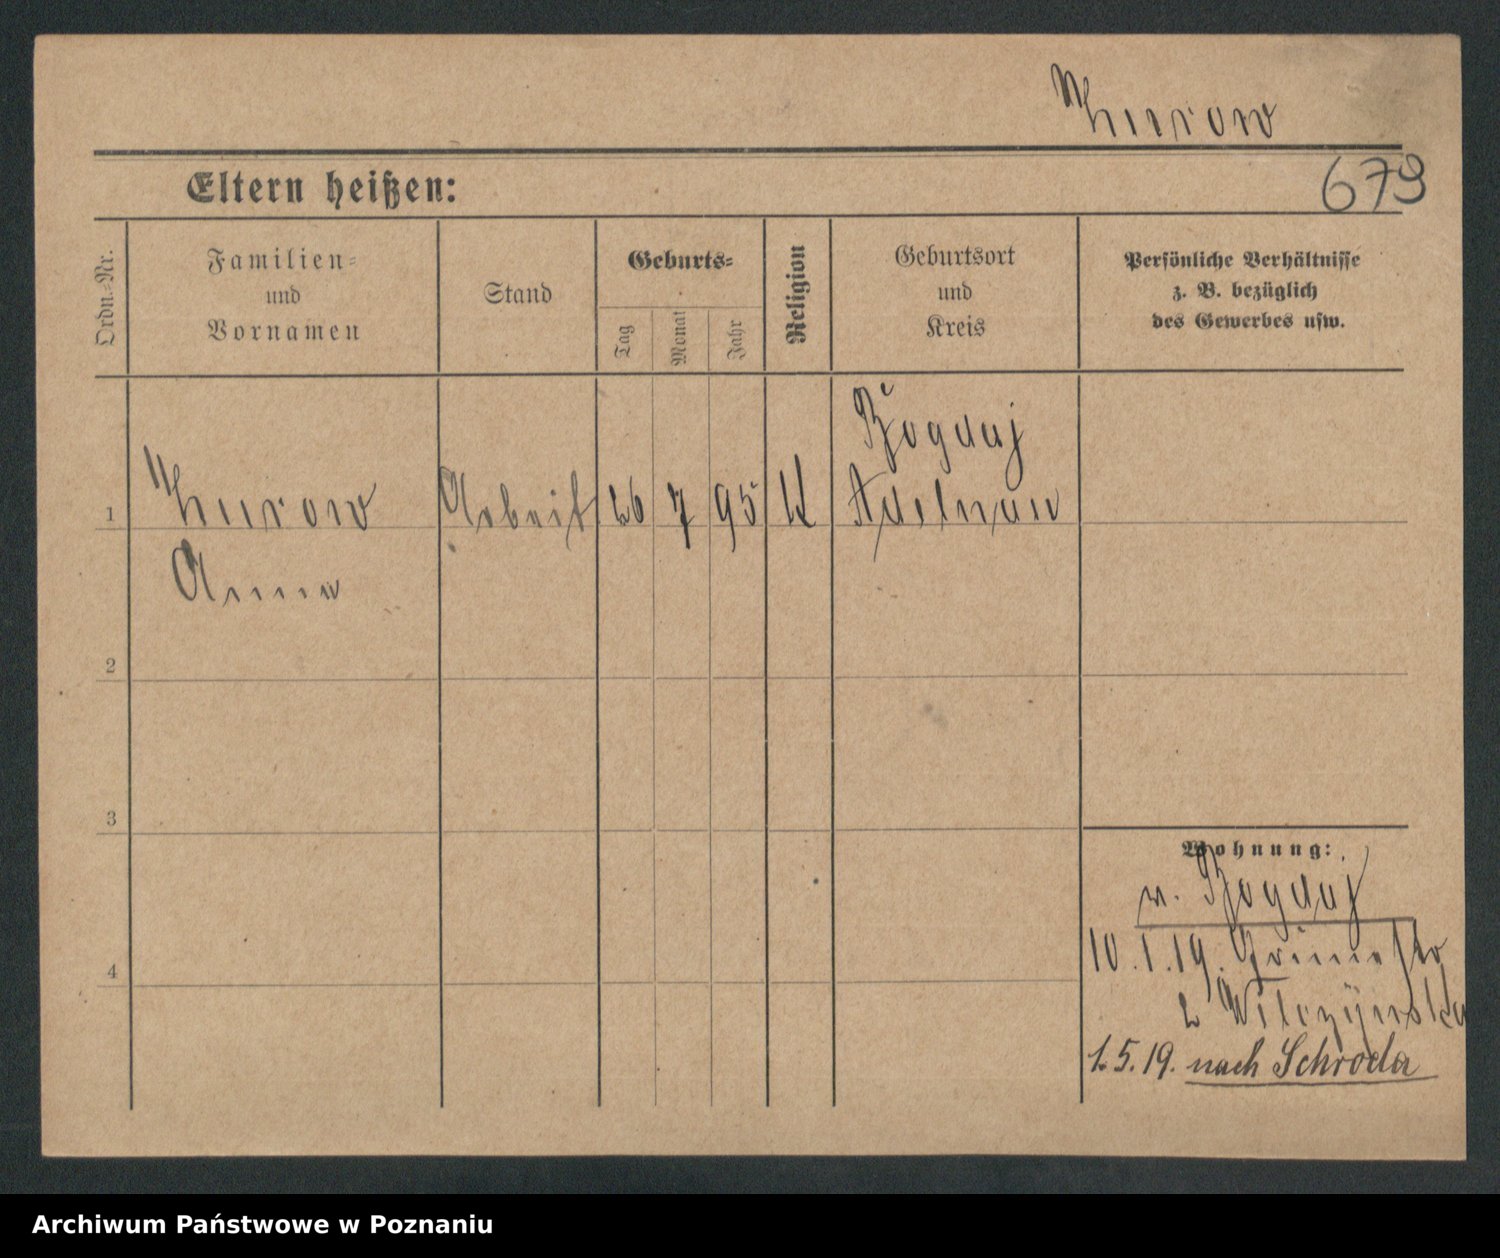 Thurow
679
Eltern heißen:
Ordn.-Nr.
Familien-
und
Vornamen
Stand
Geburts-
Tag
Monat
Jahr
Religion
Geburtsort
und
Kreis
Persönliche Verhältnisse
z. B. bezüglich
des Gewerbes usw.
1
Thurow
Anna
Arbeit
26
7
95
K
Bogdaj
Adelnau
2
3
4
Wohnung:
v. Bogdaj
10.1.19.
Wilczynska
1.5.19. nach Schroda
Archiwum Państwowe w Poznaniu